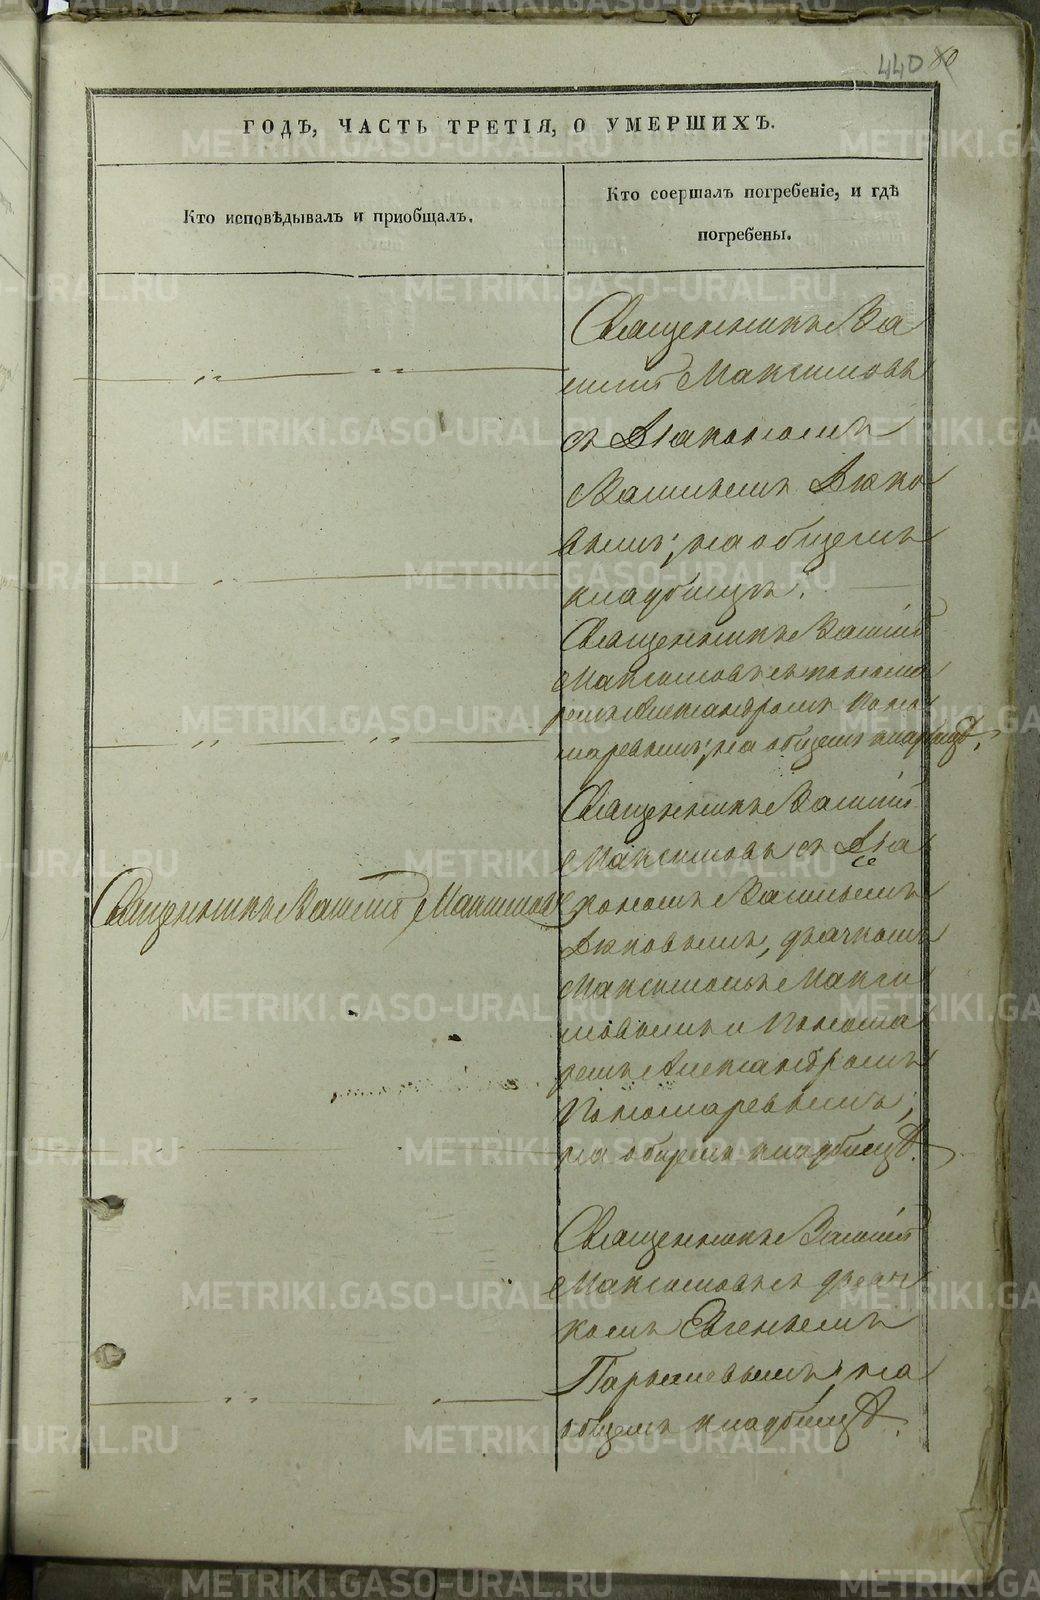 440 80
ГОДЪ, ЧАСТЬ ТРЕТІЯ, О УМЕРШИХЪ.
Кто исповѣдывалъ и приобщалъ.
Кто соершалъ погребеніе, и гдѣ
погребены.
Священникъ Ва
силій Максимовъ
съ Діакономъ
Васильемъ Дюко
вымъ; на общемъ
кладбищѣ.
Священникъ Василій
Максимовъ съ понома
ремъ Александромъ Поно
маревымъ; на общемъ кладбищѣ.
Священникъ Василій
Максимовъ съ Діа
Священникъ Василій Максимовъ
кономъ Васильемъ
Дюковымъ, дьячкомъ
Максимомъ Макси
мовымъ и Понома
ремъ Александромъ
Пономаревымъ;
на общемъ кладбищѣ.
Священникъ Василій
Максимовъ съ дьяч
комъ Евгеньемъ
Парышевымъ; на
общемъ кладбищѣ.
METRIKI.GASO-URAL.RU